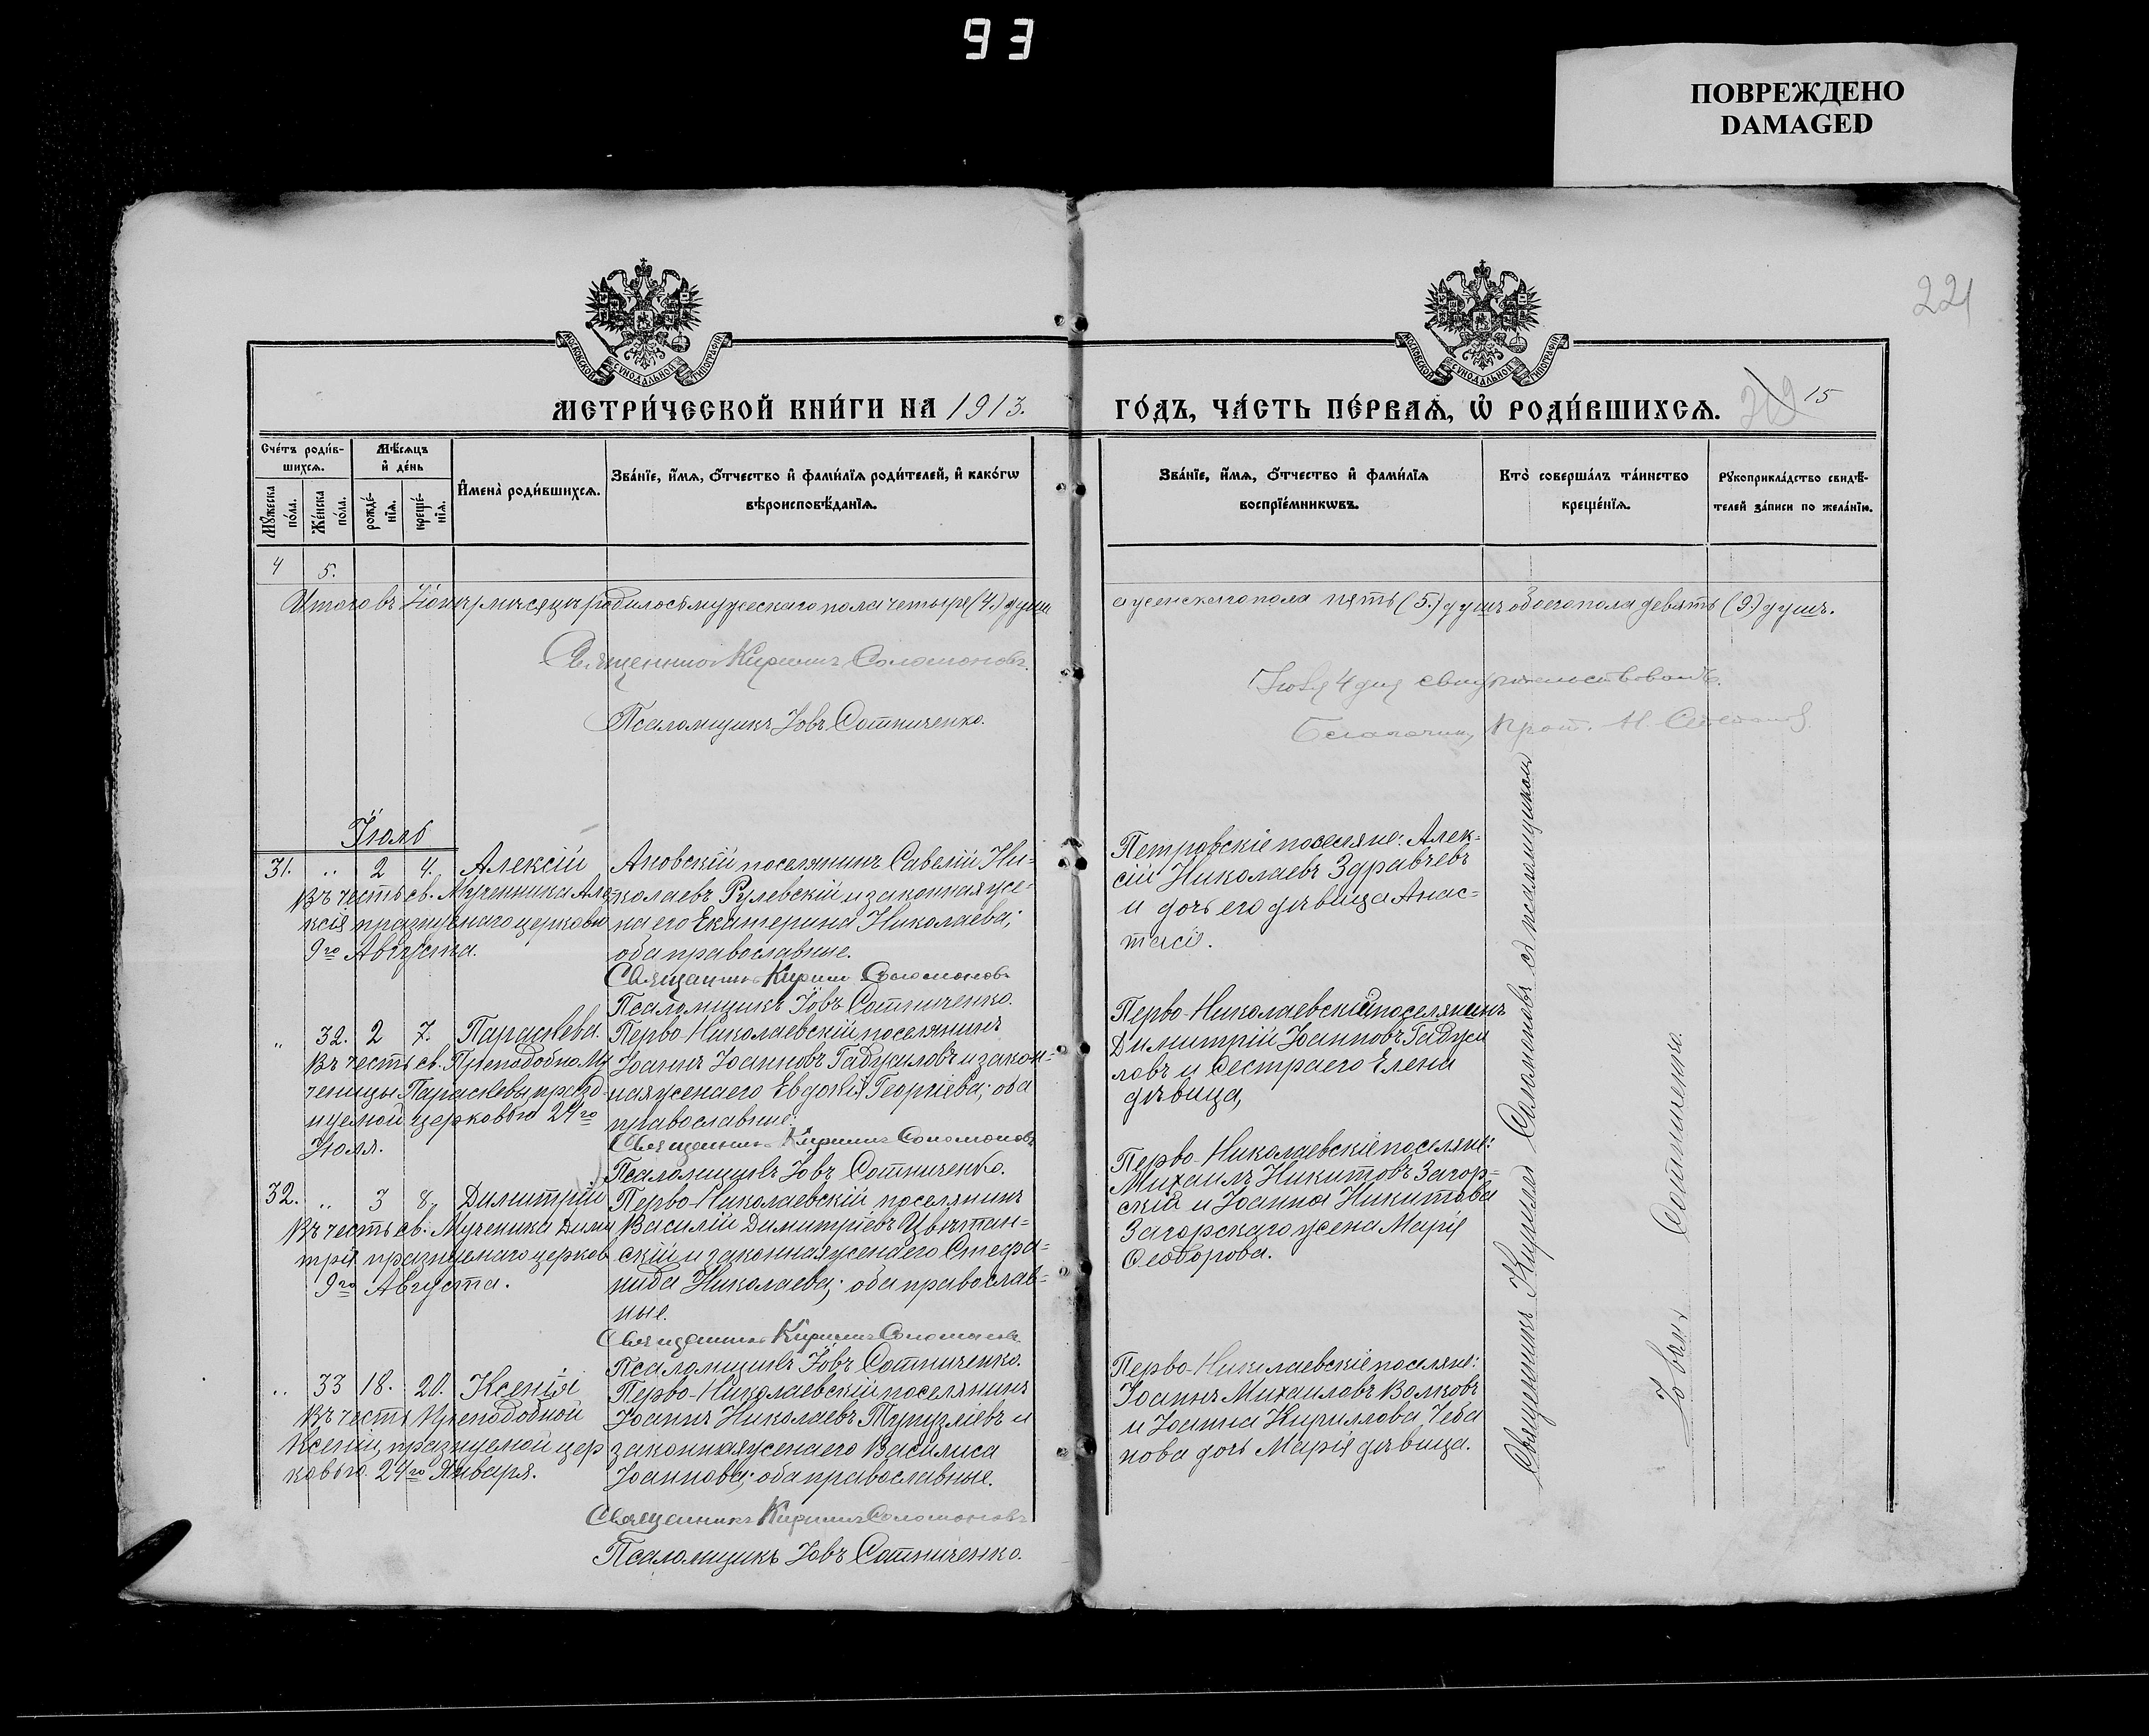 93
ПОВРЕЖДЕНО
DAMAGED
221
МОСКОВСКОЙ СѴНОДАЛЬНОЙ ТИПОГРАФІИ
МОСКОВСКОЙ СѴНОДАЛЬНОЙ ТИПОГРАФІИ
МЕТРИ́ЧЕСКОЙ КНИ́ГИ НА 1913.
ГО́ДЪ, ЧА́СТЬ ПЕ́РВАѦ, Ѡ҆ РОДИ́ВШИХСѦ.
15
Сче́тъ роди́в-
шихсѧ.
Мѣ́сѧцъ
и҆ де́нь
Мꙋ́жеска
по́ла.
Же́нска
по́ла.
рожде́-
нїѧ.
креще́-
нїѧ.
И҆мена̀ роди́вшихсѧ.
Зва́нїе, и҆́мѧ, ѻ҆́тчество и҆ фами́лїѧ роди́телей, и҆ како́гѡ
вѣроисповѣ́данїѧ.
Зва́нїе, и҆́мѧ, ѻ҆́тчество и҆ фами́лїѧ
воспрїе́мникѡвъ.
Кто̀ соверша́лъ та́инство
креще́нїѧ.
Рꙋкоприкла́дство свидѣ́-
телей за́писи по жела́нїю.
4 5.
Итого въ Іюнѣ мѣсяцѣ родилось мужескаго пола четыре (4) души
а женскаго пола пять (5) душъ обоего пола девять (9) душъ.
Священникъ Кириллъ Соломоновъ.
Псаломщикъ Іовъ Сотниченко.
Іюля 4 дня свидѣтельствовалъ.
Благочин. Прот. Н.
Іюль
31. " 2 4. Алексій
Въ честь св. Мученника Але-
ксія празнуемаго церковію
9го Августа.
Ановскій поселянинъ Савелій Ни-
колаевъ Рулевскій и законная же-
на его Екатерина Николаева;
оба православные.
Священникъ Кириллъ Соломоновъ
Псаломщикъ Іовъ Сотниченко.
Петровскіе поселяне: Алек-
сій Николаевъ Здравчевъ
и дочь его дѣвица Анас-
тасія.
" 32. 2 7. Параскева.
Въ честь св. Преподобно Му
ченицы Параскевы празд
нуемой церковью 24го
Іюля.
Перво-Николаевскій поселянинъ
Іоаннъ Іоанновъ Гаджиловъ и закон-
ная жена его Евдокія Георгіева; оба
православные.
Священникъ Кириллъ Соломоновъ
Псаломщикъ Іовъ Сотниченко.
Перво-Николаевскій поселянинъ
Димитрій Іоанновъ Гаджи
ловъ и сестра его Елена
дѣвица,
32. " 3 8. Димитрій
Въ честь св. Мученика Дими
трія празнуемаго церков
9го Августа.
Перво-Николаевскій поселянинъ
Василій Димитріевъ Цвѣтан-
скій и законная жена его Стефа-
нида Николаева; оба православ-
ные.
Священникъ Кириллъ Соломоновъ
Псаломщикъ Іовъ Сотниченко.
Перво-Николаевскіе поселяне:
Михаилъ Никитовъ Загор-
скій и Іоанна Никитова
Загорскаго жена Марія
Ѳеодорова.
" 33 18. 20. Ксенія
Въ честь Преподобной
Ксеніи, празнуемой цер
ковью 24го Января.
Перво-Николаевскій поселянинъ
Іоаннъ Николаевъ Тургузліевъ и
законная жена его Василиса
Іоаннова; оба православные.
Священникъ Кириллъ Соломоновъ
Псаломщикъ Іовъ Сотниченко.
Перво-Николаевскіе поселяне:
Іоаннъ Михаиловъ Волковъ
и Іоанна Кириллова Чеба
нова дочь Марія дѣвица.
Священникъ Кириллъ Соломоновъ съ псаломщикомъ
Іовомъ Сотниченко.